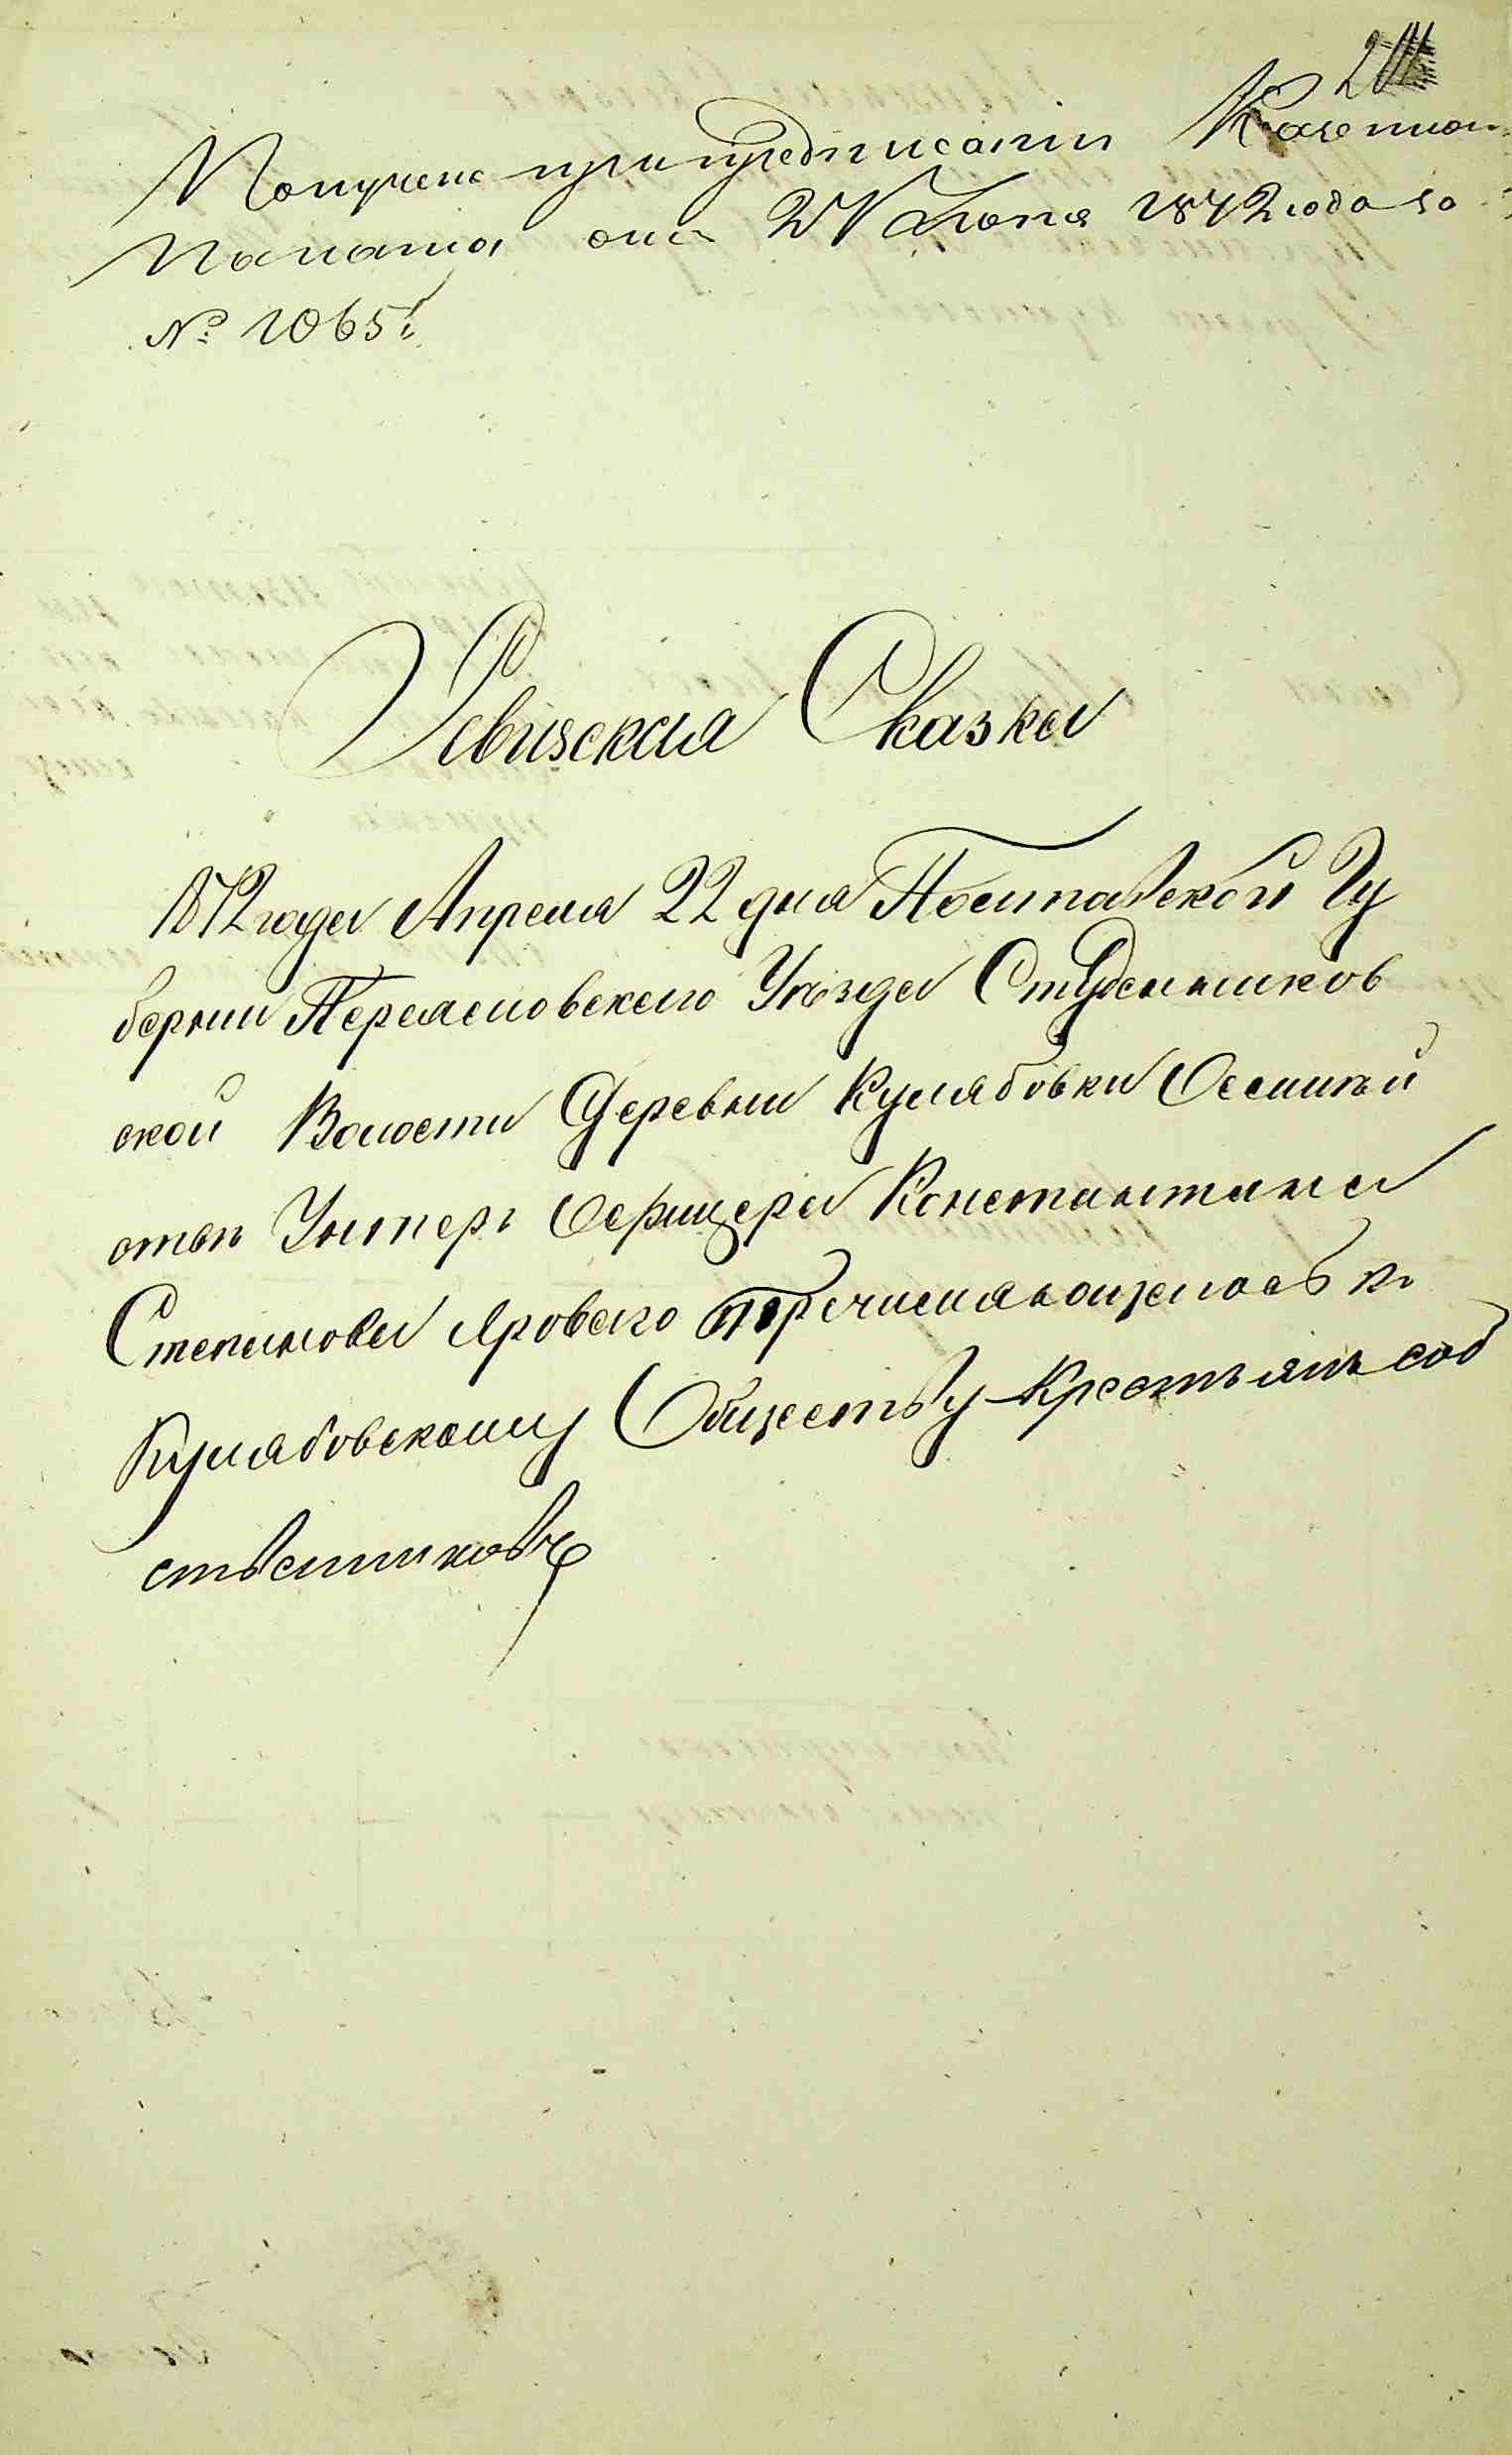 2
Получена при предписаніи Казенной
Палаты отъ 2 Іюня 1872 года за
№ 1065.
Ревизская Сказка
1872 года Апреля 22 дня Полтавской Гу
берніи Переяславского Уѣзда Студеников
ской Волости Деревни Кулябовки
Унтеръ Офицера Константина
Степанова Ярового перечисляющегось къ
Кулябовскому Обществу Крестьянъ соб
ственниковъ